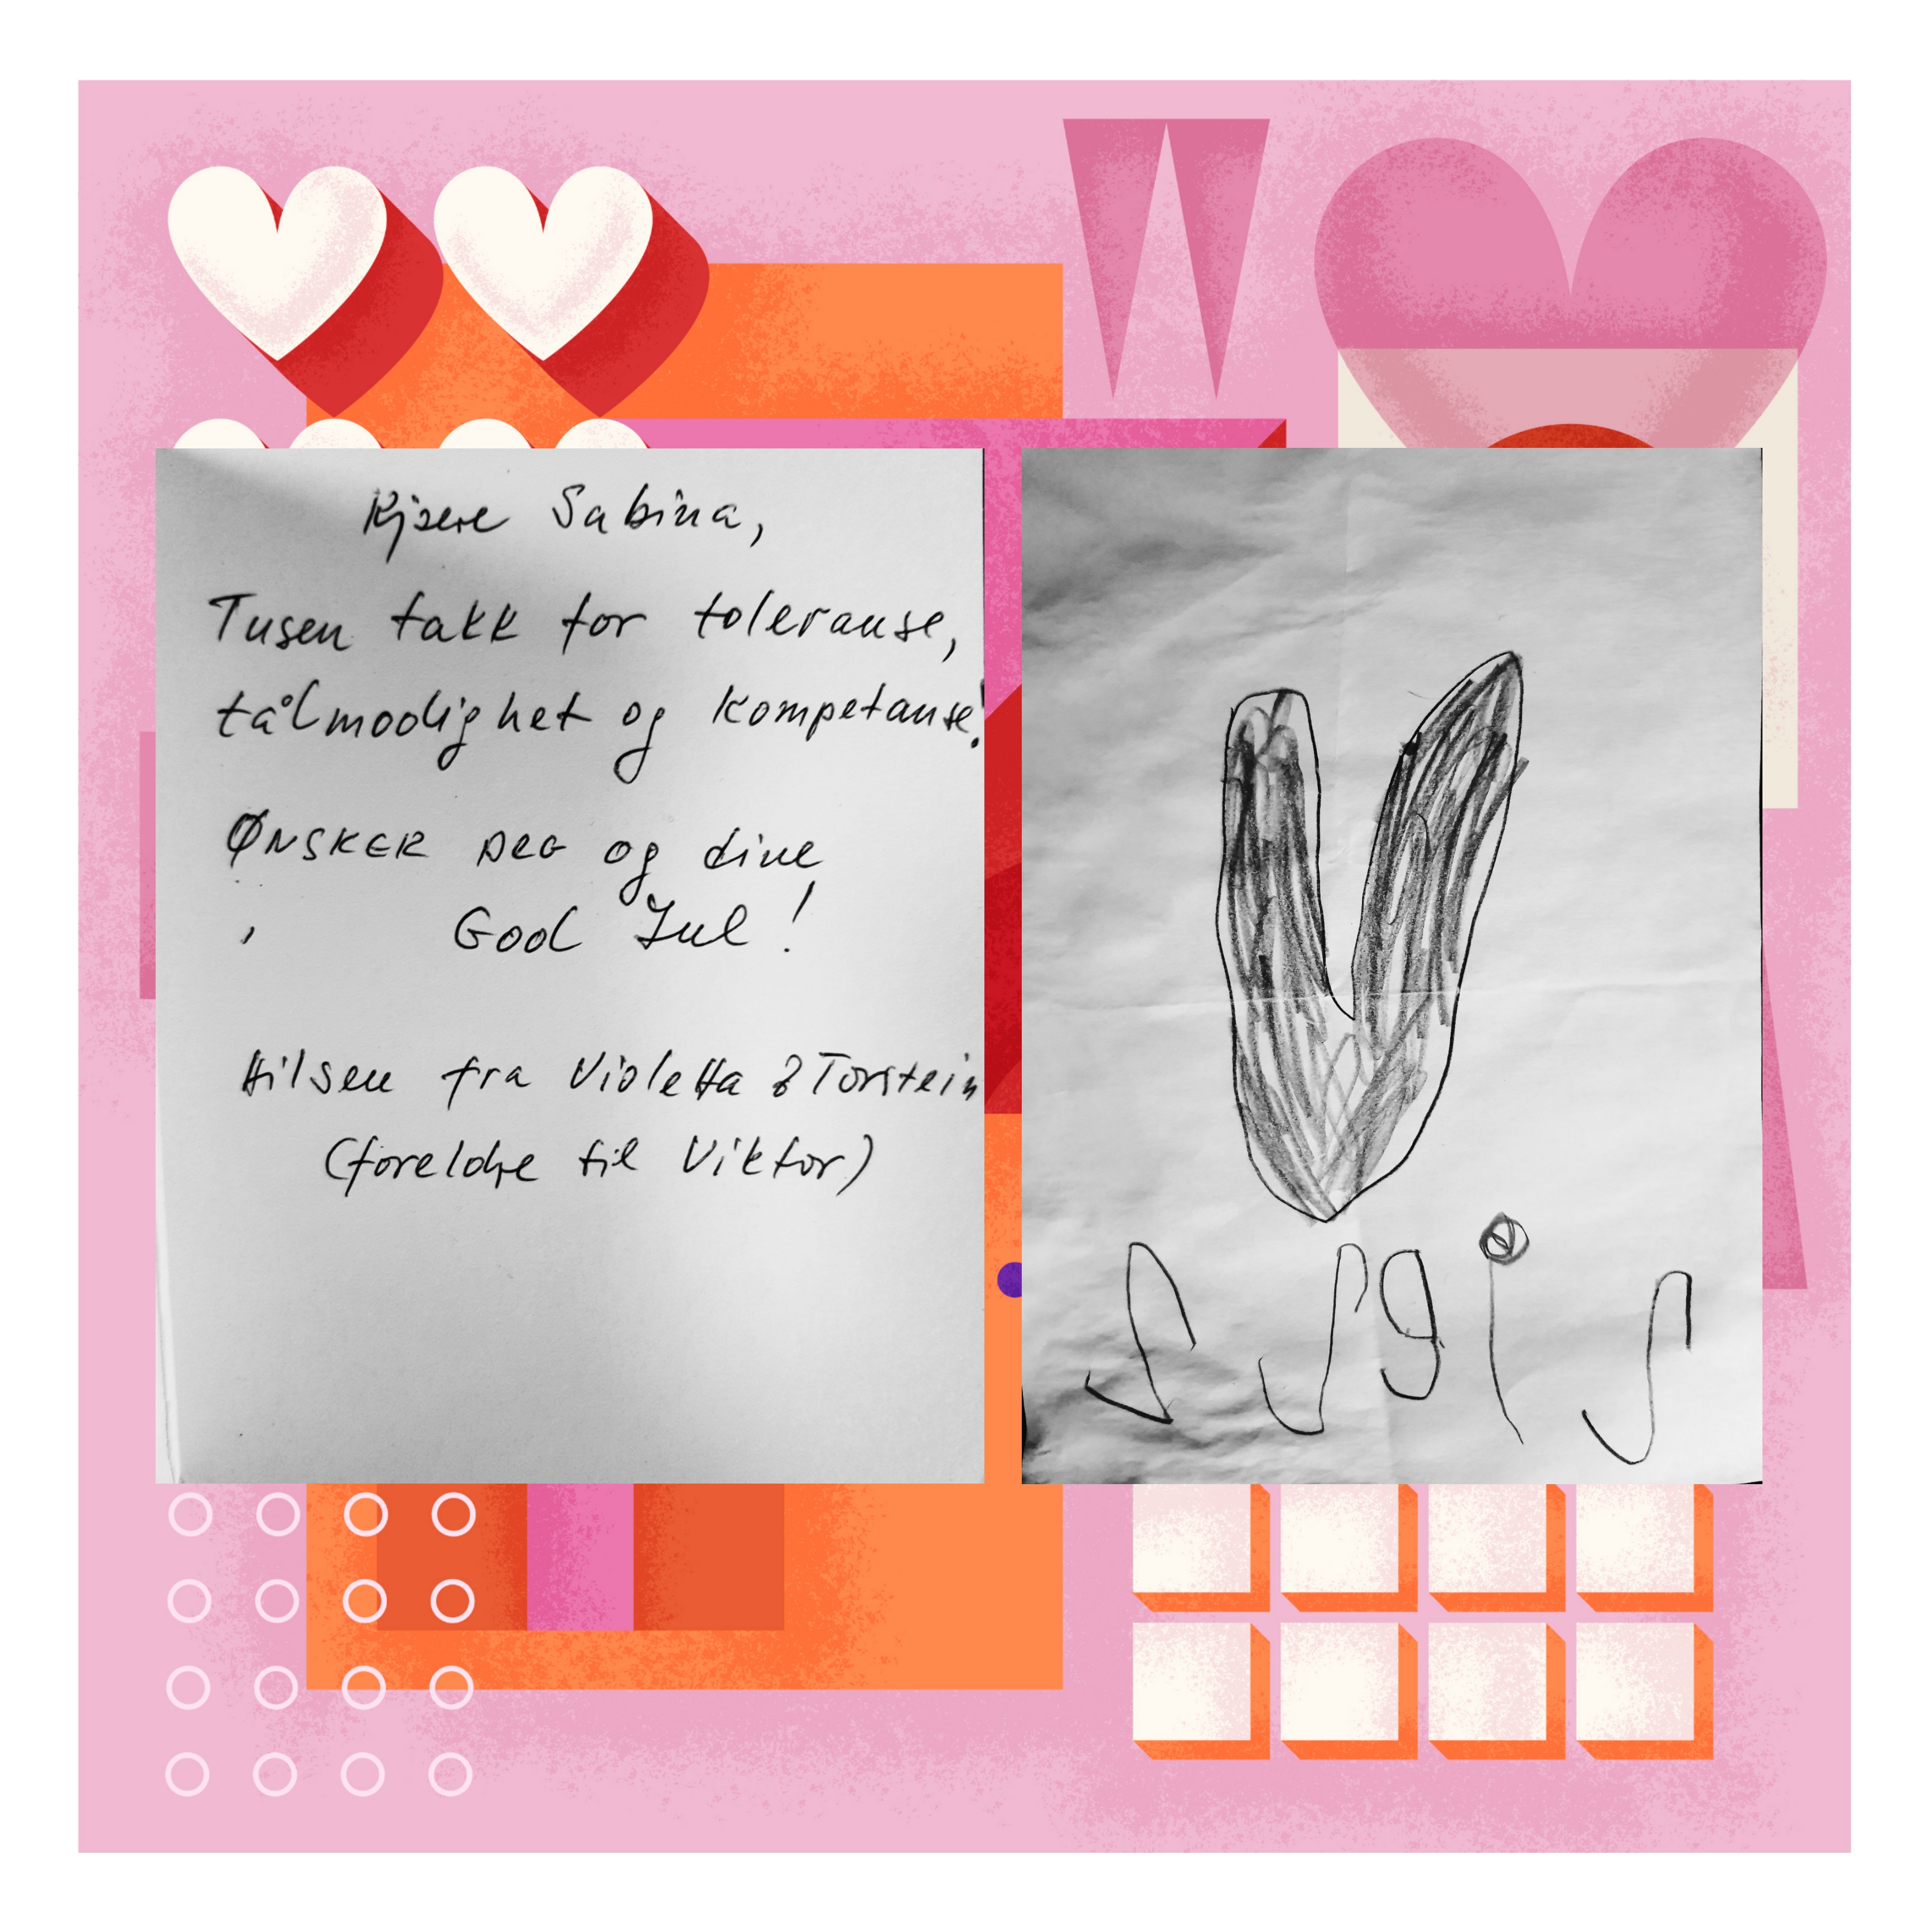 Kjære Sabina,
Tusen takk for toleranse,
tålmodighet og kompetanse!
ØNSKER DEG og dine
God Jul!
Hilsen fra Violetta & Torstein
(foreldre til Viktor)